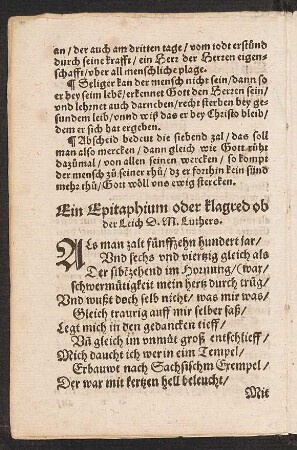 an / der auch am dritten tage / vom todt erstůnd
durch seine krafft / ein Herr der Herren eigen-
schafft / vber all menschliche plage.
¶ Seliger kan der mensch nicht sein / dann so
er bey seim lebē / erkennet Gott den Herren sein /
vnd lehrnet auch darneben / recht sterben bey ge-
sundem leib / vnnd wiß das er bey Christo bleib /
dem er sich hat ergeben.
¶ Abscheid bedeut die siebend zal / das soll
man also mercken / dann gleich wie Gott růht
dazůmal / von allen seinen wercken / so kompt
der mensch zů seiner rhů / dz er forthin kein sünd
mehr thů / Gott wöll vns ewig stercken.
Ein Epitaphium oder klagred ob
der Leich D. M. Luthers.
Als man zalt fünffzehn hundert jar /
Vnd sechs vnd viertzig gleich als
Der sibēzehend im Hornung (war /
schwermůtigkeit mein hertz durch trůg /
Vnd wußt doch selb nicht / was mir was /
Gleich traurig auff mir selber saß /
Legt mich in den gedancken tieff /
Vñ gleich im vnmůt groß entschlieff /
Mich daucht ich wer in eim Tempel /
Erbauwt nach Sachsischm Exempel /
Der war mit kertzen hell beleucht /
Mit